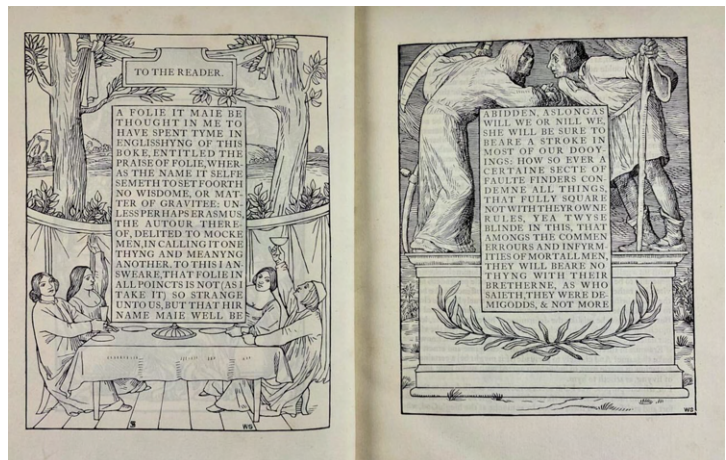 TO THE READER.
A FOLIE IT MAIE BE
THOUGHT IN ME TO
HAVE SPENT TYME IN
ENGLISSHYNG OF THIS
BOKE, ENTITLED THE
PRAISE OF FOLIE, WHER
AS THE NAME IT SELFE
SEMETH TO SET FOORTH
NO WISDOME, OR MAT-
TER OF GRAVITEE: UN-
LESS PERHAPS ERASMUS,
THE AUTOUR THERE-
OF, DELITED TO MOCKE
MEN, IN CALLING IT ONE
THYNG AND MEANYNG
ANOTHER. TO THIS I AN-
SWEARE, THAT FOLIE IN
ALL POINCTS IS NOT (AS I
TAKE IT) SO STRANGE
UNTO US, BUT THAT HIR
NAME MAIE WELL BE
WG
ABIDDEN, AS LONG AS
WILL WE OR NILL WE,
SHE WILL BE SURE TO
BEARE A STROKE IN
MOST OF OUR DOOY-
INGS: HOW SO EVER A
CERTAINE SECTE OF
FAULTE FINDERS CON-
DEMNE ALL THINGS,
THAT FULLY SQUARE
NOT WITH THEYR OWNE
RULES, YEA TWYSE
BLINDE IN THIS, THAT
AMONGS THE COMMEN
ERROURS AND INFYRM-
ITIES OF MORTALL MEN,
THEY WILL BEARE NO
THYNG WITH THEIR
BRETHERNE, AS WHO
SAIETH, THEY WERE DE-
MIGODDS, & NOT MORE
WG